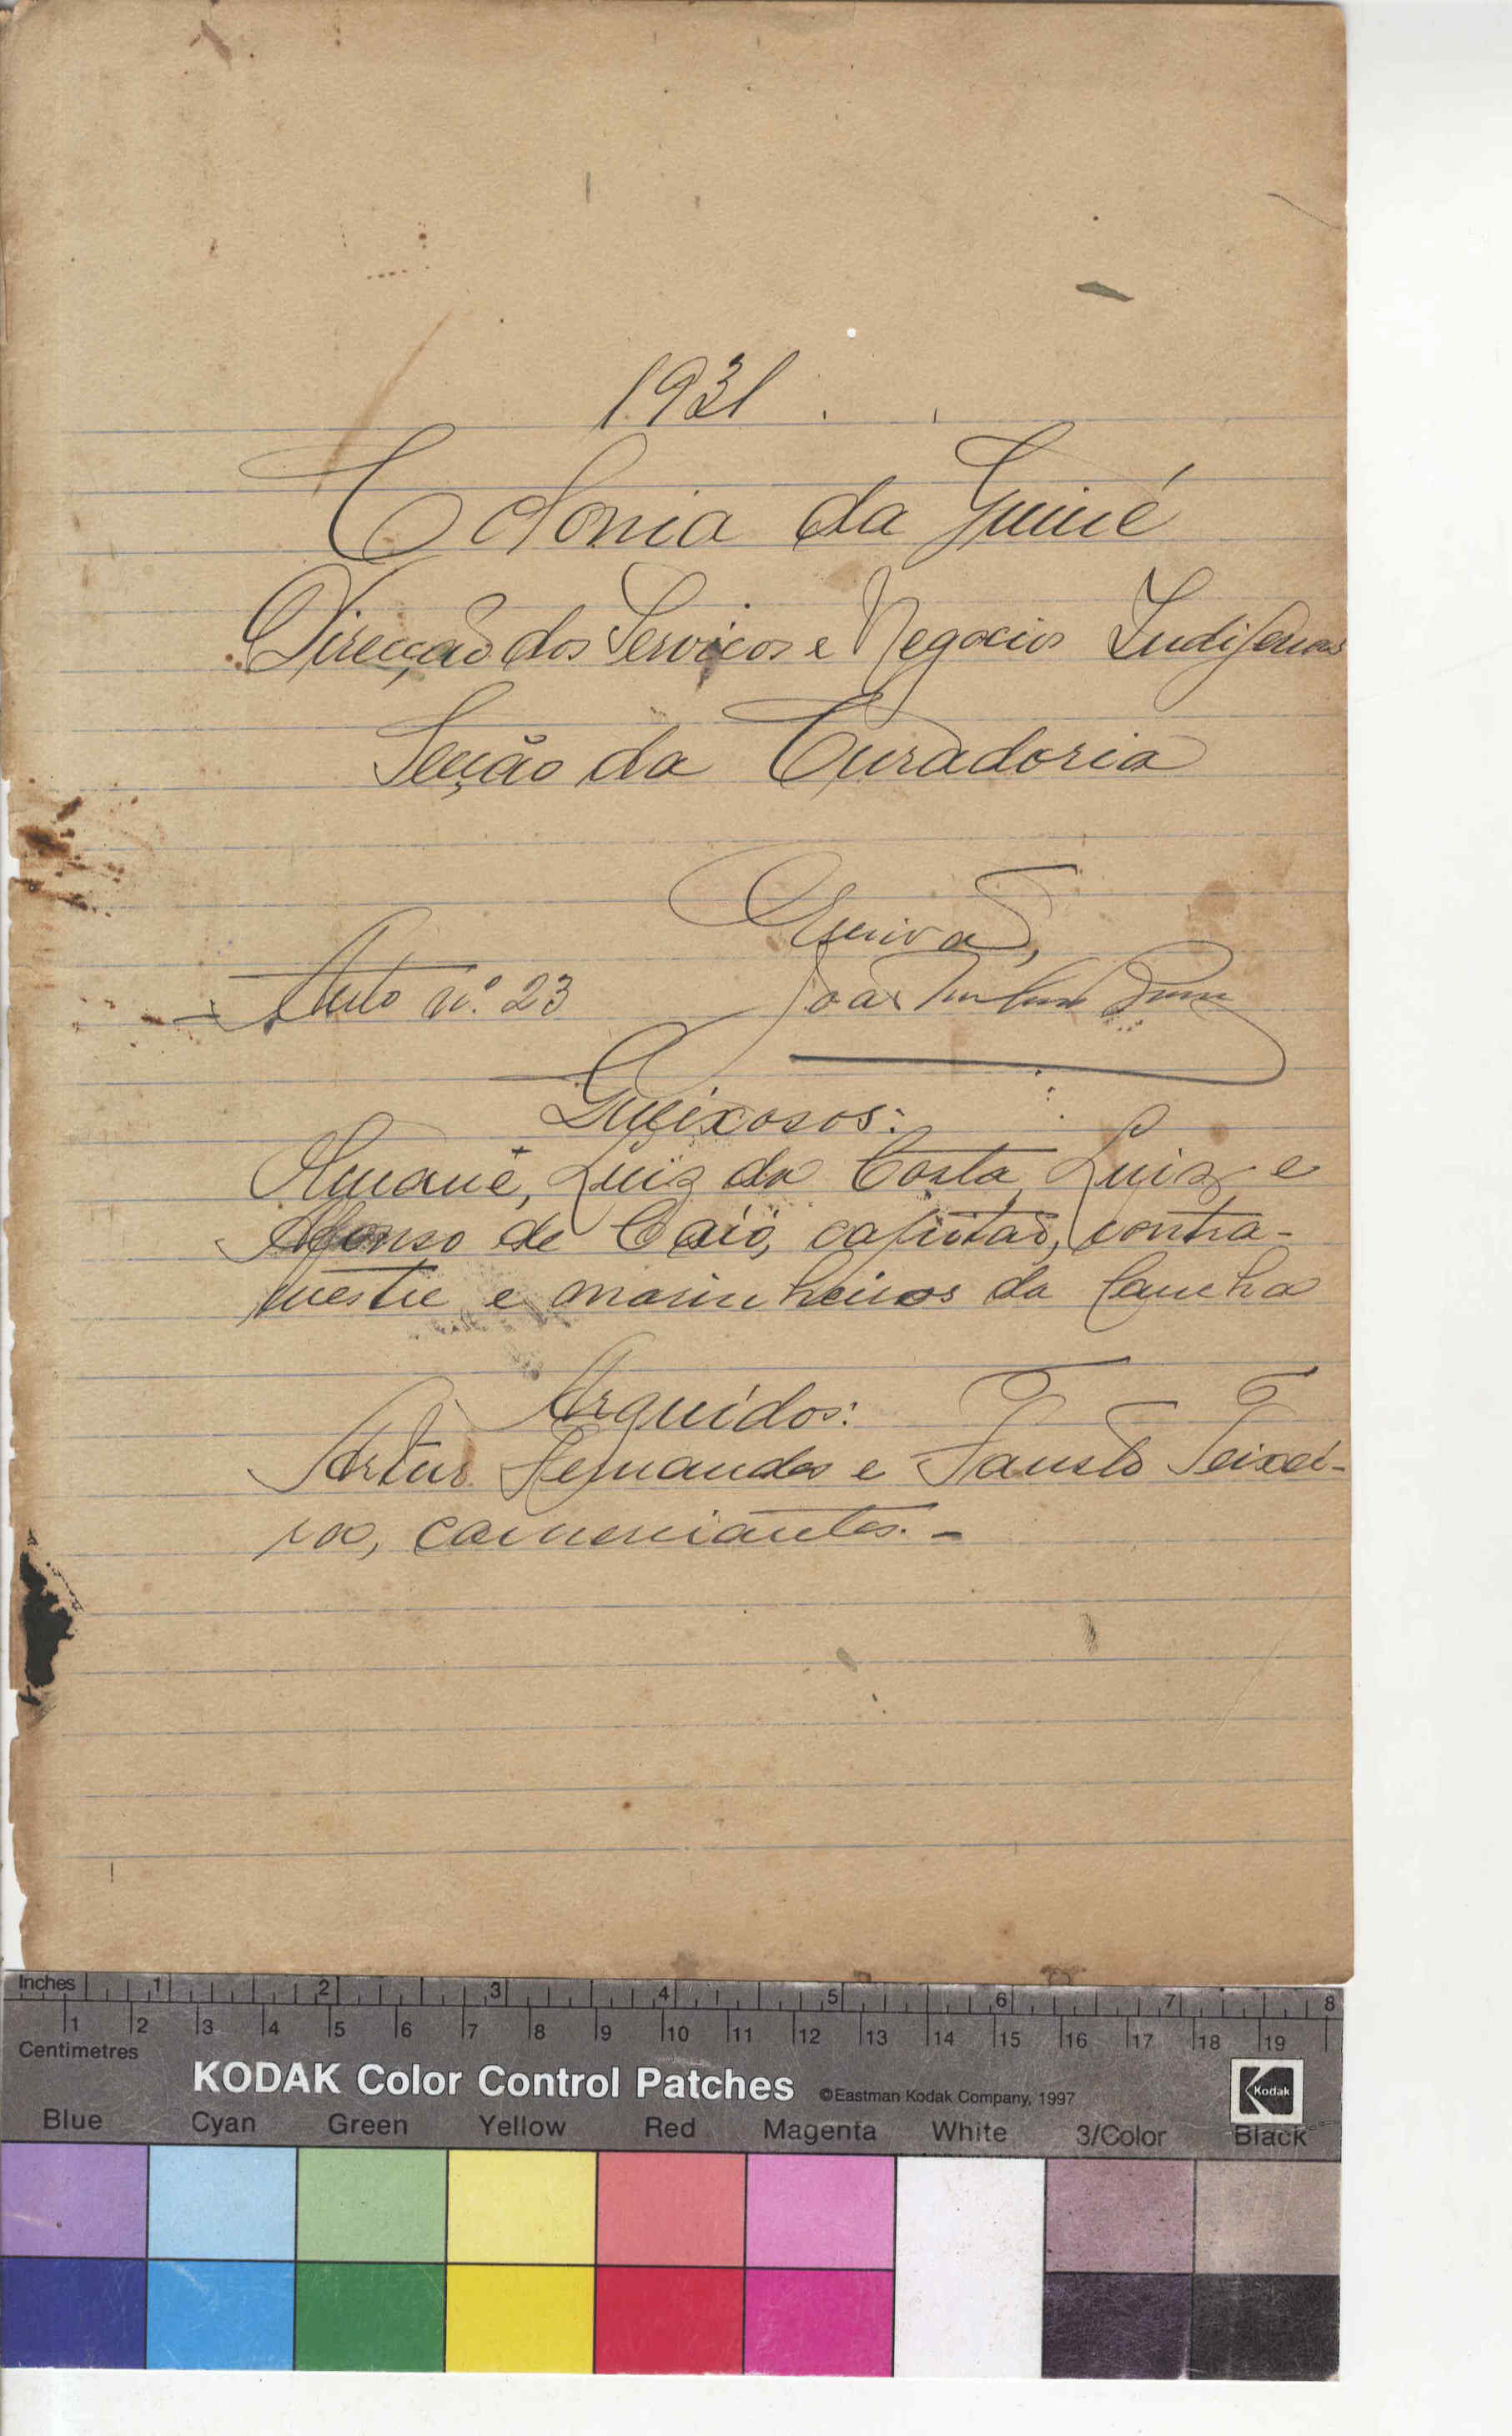 1931
Colonia da Guiné
Direcção dos Serviços e Negocios Indigenas
Secção da Curadoria
Escrivão,
Auto n.º 23
João
Queixosos:
Amané, Luiz da Costa, Luiz e
Afonso de Caió, capitão, contra-
mestre e marinheiros da lancha
Arguidos:
Artur Fernandes e Fausto Teixei-
ra, comerciantes. -
Inches 1 2 3 4 5 6 7 8
1 2 3 4 5 6 7 8 9 10 11 12 13 14 15 16 17 18 19
Centimetres
KODAK Color Control Patches ©Eastman Kodak Company, 1997 Kodak
Blue Cyan Green Yellow Red Magenta White 3/Color Black